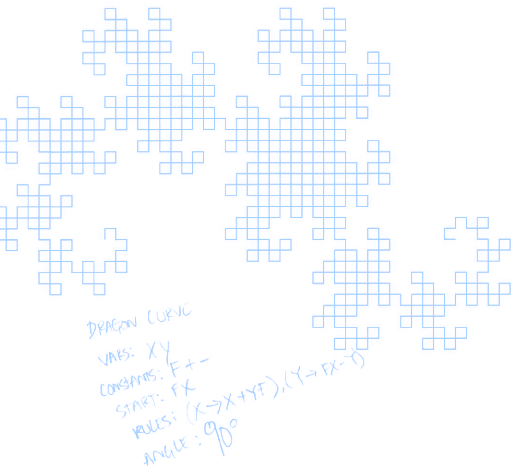 DRAGON CURVE
VARS: X Y
CONSTANTS: F + -
START: FX
RULES: (X→X+YF),(Y→FX-Y)
ANGLE: 90°